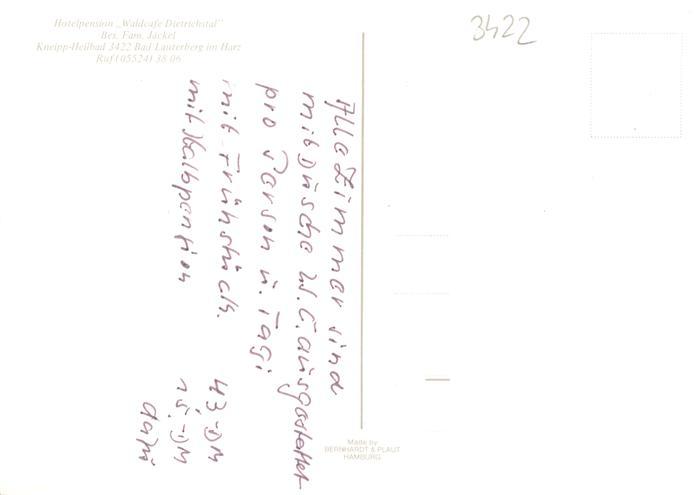 Hotelpension „Waldcafe Dietrichstal"
Bes. Fam. Jackel
Kneipp-Heilbad 3422 Bad Lauterberg im Harz
Ruf (05524) 38 06
3422
Alle Zimmer sind
mit Dusche W.C. ausgestattet
pro Person u. Tag:
mit Frühstück. 43.-DM
mit Halbpention 15.-DM
dazu
Made by
BERNHARDT & PLAUT
HAMBURG